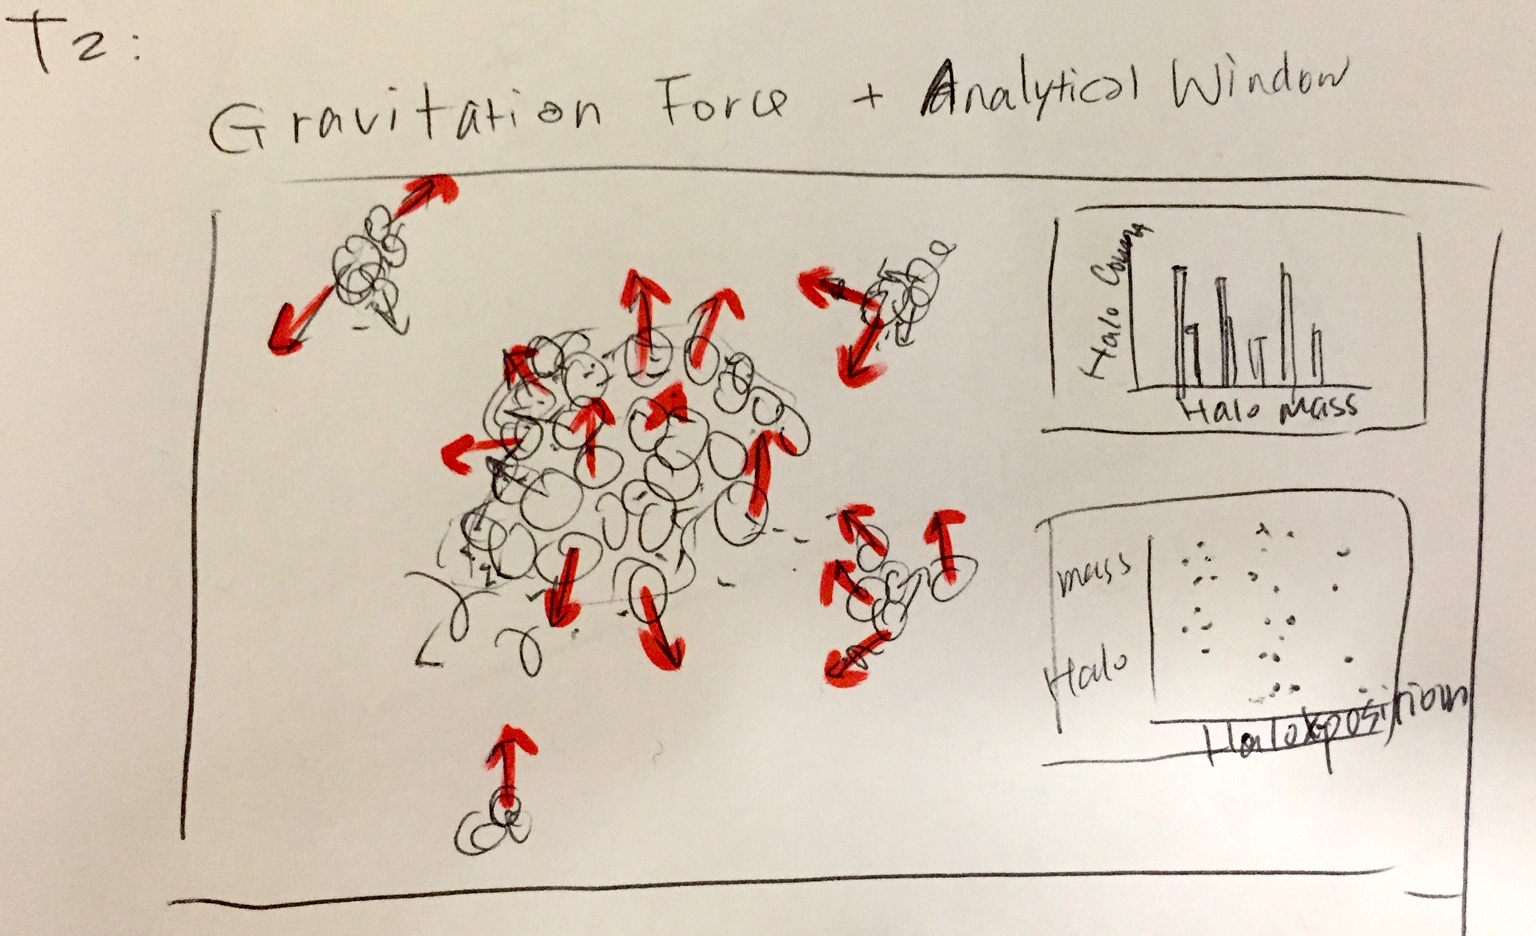 T2:
Gravitation Force + Analytical Window
Halo
Halo Mass
mass
Halo
Halo x position